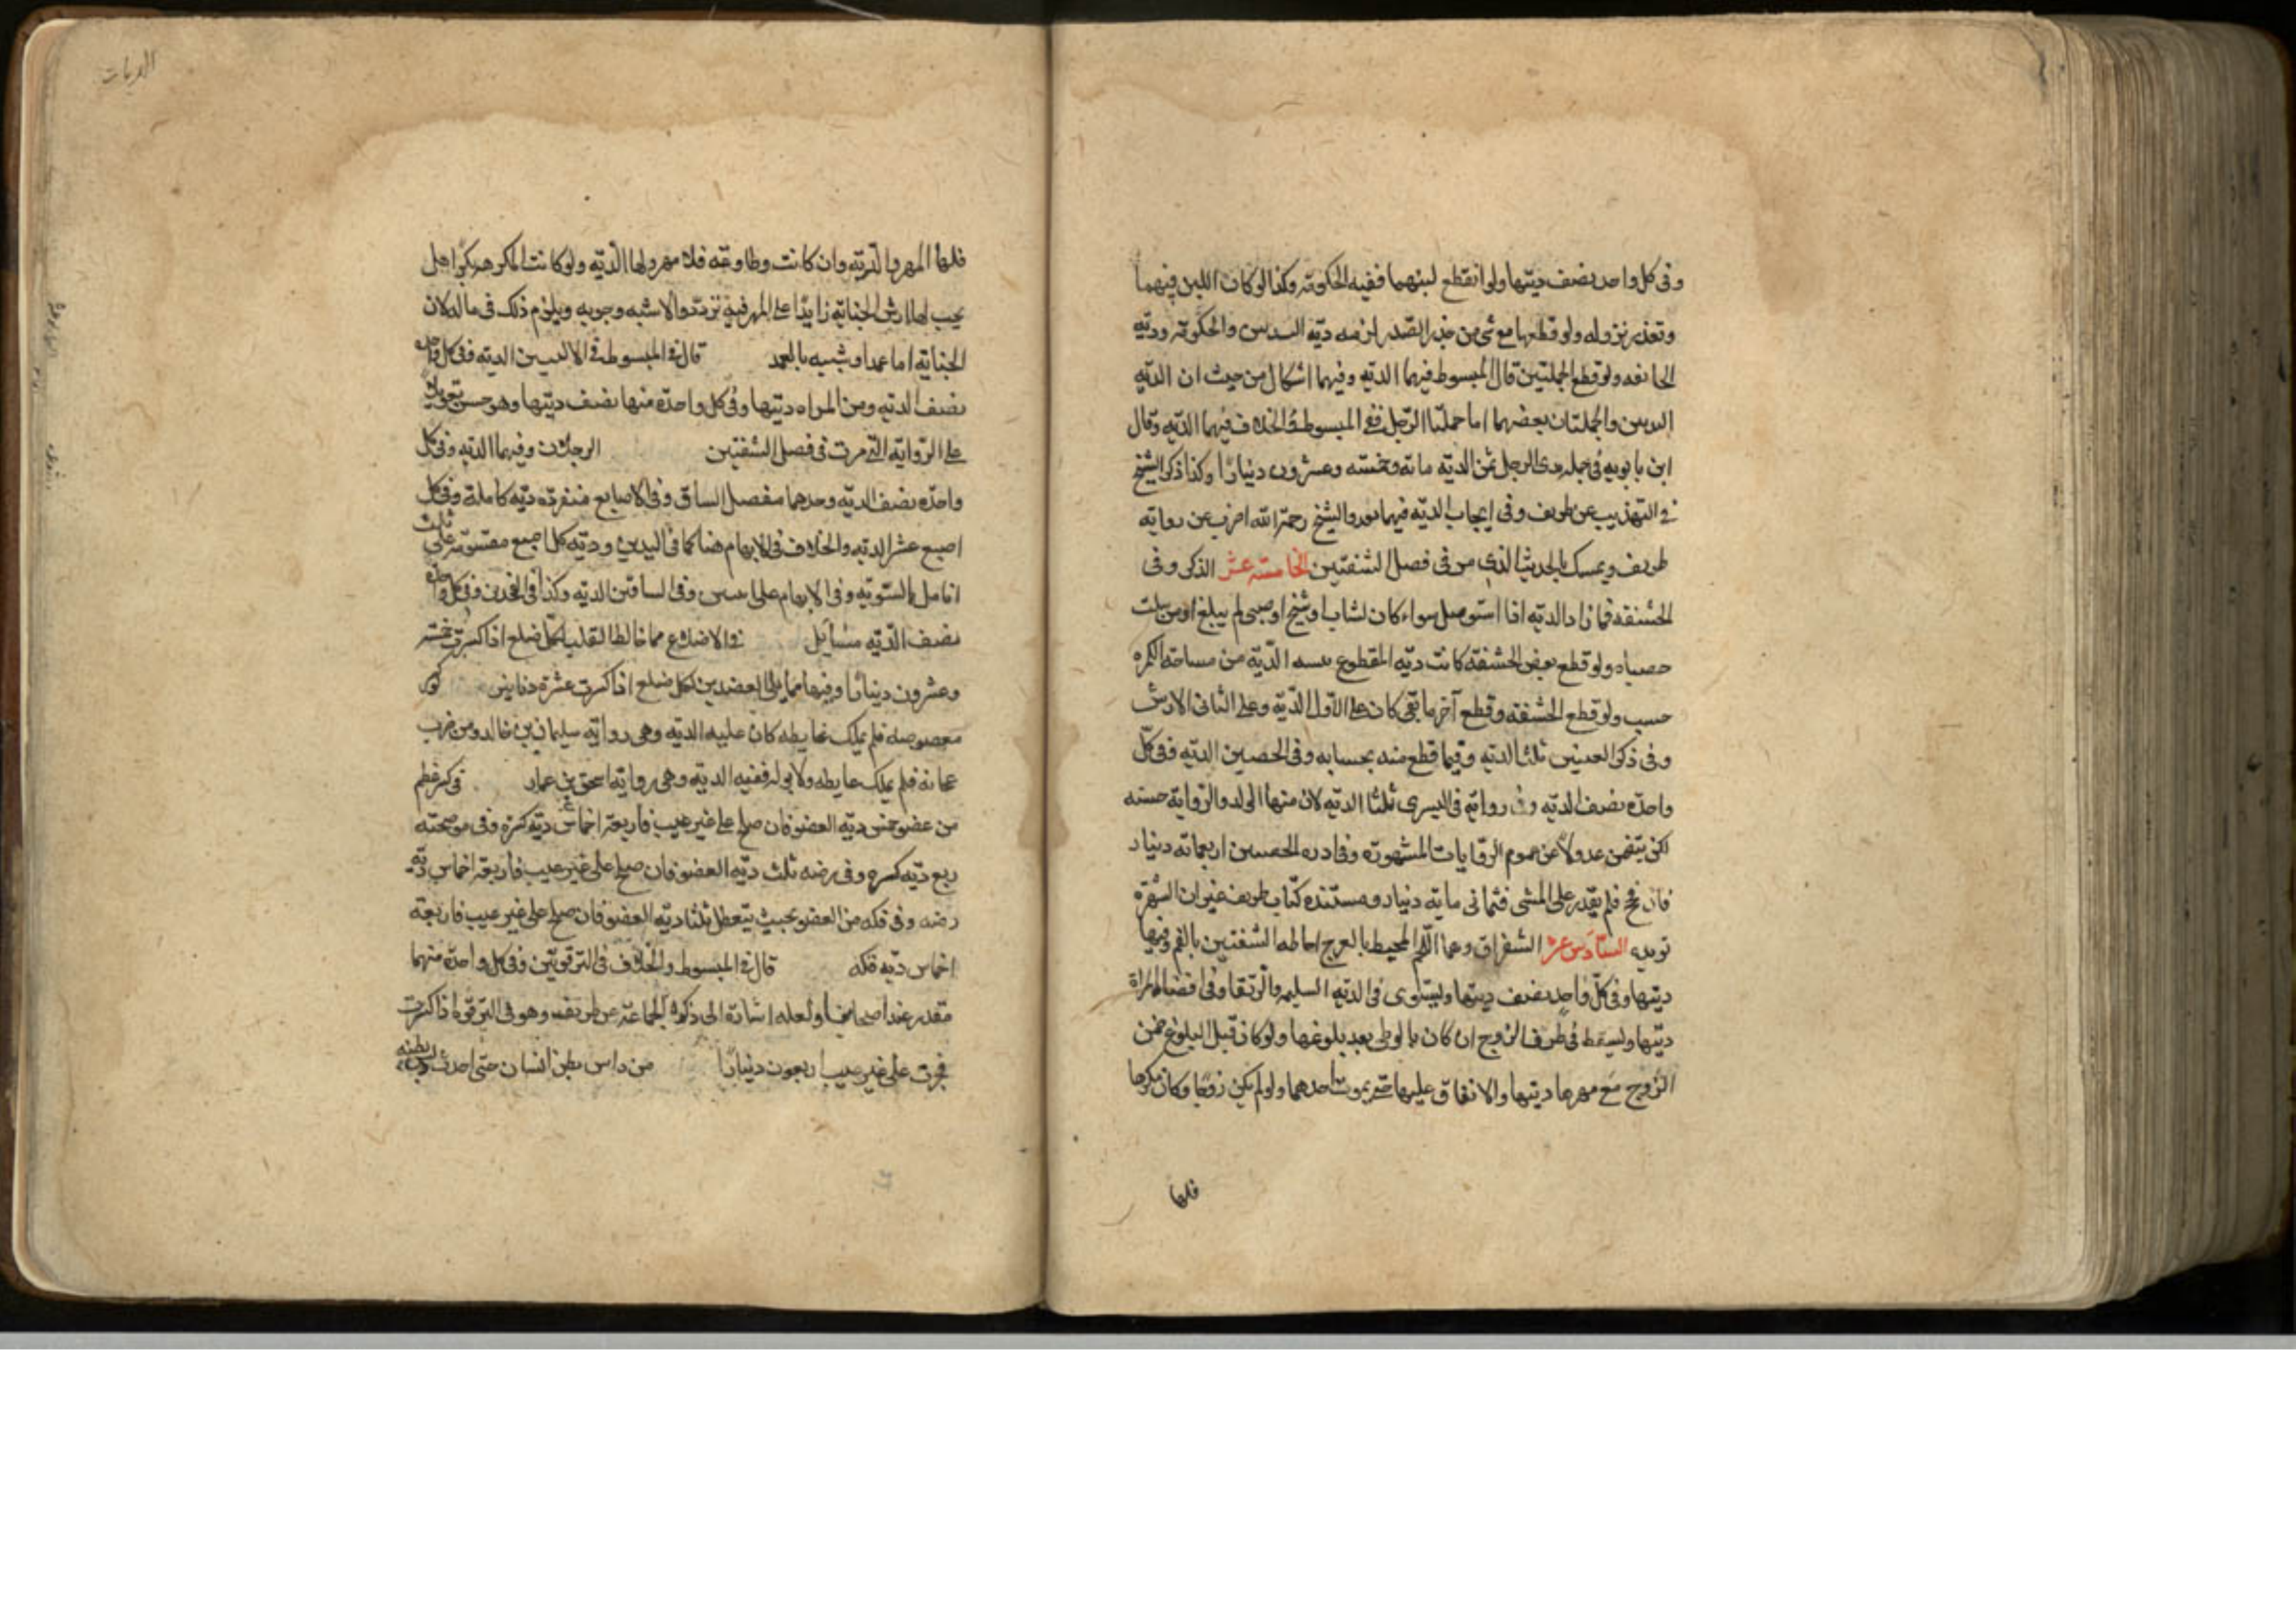 وفى كل واحد نصف ديتها ولو انقطع لبنهما ففيه الحكومة وكذا لو كان اللبن فيهما
وتعذر نزوله ولو قطعهما مع شئ من جلد الصدر لزمه دية الثديين والحكومة ودية
الجايفه ولو قطع الحلمتين قال المبسوط فيهما الدية وفيهما اشكال من حيث ان الدية
الثديين والحلمتان بعضهما اما حلمتا الرجل ففى المبسوط والخلاف فيهما الدية وقال
ابن بابويه فى حلمة ثدى الرجل ثمن الدية مائة وخمسه وعشرون دينارا وكذا ذكر الشيخ
فى التهذيب عن ظريف وفى ايجاب الدية فيهما بعد والشيخ رحمة الله اضرب عن رواية
ظريف وتمسك بالحديث الذى مر فى فصل الشفتين الخامسة عشر الذكر وفى
الحشفه فما زاد الدية اذا استوصل سواء كان لشاب او شيخ او صبى لم يبلغ او من سلت
خصياه ولو قطع بعض الحشفة كانت دية المقطوع بنسبه الدية من مساحة الكمره
حسب ولو قطع الحشفة وقطع آخر ما بقى كان على الاول الدية وعلى الثانى الارش
وفى ذكر العنين ثلث الدية وفيما قطع منه بحسابه وفى الخصيين الدية وفى كل
واحدة نصف الدية وفى رواية فى اليسرى ثلثا الدية لان منها الولد والرواية حسنه
لكن تتضمن عدولا عن عموم الروايات المشهورة وفى ادره الخصيين اربعمائة دينار
فان فحج فلم يقدر على المشى فثمانى ماية دينار ومستنده كتاب ظريف غير ان الشهرة
تويده السادس عشر الشفران وهما اللحم المحيط بالفرج احاطه الشفتين بالفم وفيهما
ديتها وفى كل واحد نصف ديتها وتستوى فى الدية السليمه والرتقا وفى افضا المراة
ديتها وتسقط فى طرف الزوج ان كان بالوطى بعد بلوغها ولو كان قبل البلوغ ضمن
الزوج مع مهرها ديتها والانفاق عليها حتى يموت احدهما ولو لم يكن زوجا وكان مكرها
فلها
الديات
فلها المهر والدية وان كانت مطاوعه فلا مهر ولها الدية ولو كانت المكرهه بكرا هل
يجب لها ارش الجناية زايدا على المهر فيه تردد والاشبه وجوبه ويلزم ذلك فى ماله لان
الجناية اما عمدا وشبيه بالعمد قال فى المبسوط فى الاليين الدية وفى كل واحدة
نصف الدية ومن المراه ديتها وفى كل واحدة منها نصف ديتها وهو حسن تعويلا
على الرواية التى مرت فى فصل الشفتين الرجلان وفيهما الدية وفى كل
واحدة نصف الدية وحدهما مفصل الساق وفى الاصابع منفردة دية كاملة وفى كل
اصبع عشر الدية والخلاف فى الابهام هنا كما فى اليدين ودية كل اصبع مقسومة على ثلث
انامل بالسوية وفى الابهام على اثنين وفى الساقين الدية وكذا فى الفخذين وفى كل واحدة
نصف الدية مسايل فى الاضلاع مما خالط القلب لكل ضلع اذا كسرت خمسة
وعشرون دينارا وفيها مما يلى العضدين لكل ضلع اذا كسرت عشرة دنانير لو كسر
بعصوصه فلم يملك غايطه كان عليه الدية وهى رواية سليمان بن خالد ومن ضرب
عجانه فلم يملك غايطه ولا بوله ففيه الدية وهى رواية اسحق بن عمار فى كسر عظم
من عضو خمس دية العضو فان صلح على غير عيب فاربعة اخماس دية كسره وفى موضحته
ربع دية كسره وفى رضه ثلث دية العضو فان صلح على غير عيب فاربعة اخماس دية
رضه وفى فكه من العضو بحيث يتعطل ثلثا دية العضو فان صلح على غير عيب فاربعة
اخماس دية فكه قال فى المبسوط والخلاف فى الترقوتين وفى كل واحدة منهما
مقدر عند اصحابنا ولعله اشارة الى ما ذكره الجماعة عن ظريف وهو فى الترقوة اذا كسرت
فجبرت على غير عيب اربعون دينارا من داس بطن انسان حتى احدث